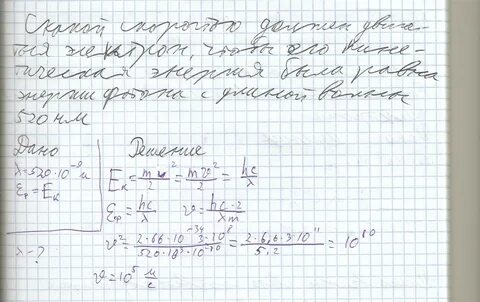 Скакой скоростью должен двига-
ться электрон, чтобы его кине-
тическая энергия была равна
энергии фотона с длиной волны
520 нм
Дано
Решение
λ=520·10⁻⁹м
Eф=Eк
λ-?
Eк = mv²/2 = mv²/2 = hc/λ
Eф = hc/λ v = hc·2/λm
v² = 2·66·10⁻³⁴·3·10⁸ / 520·10⁹·10⁻³⁰ = 2·6,6·3·10¹¹ / 5,2 = 10¹⁰
v = 10⁵ м/с